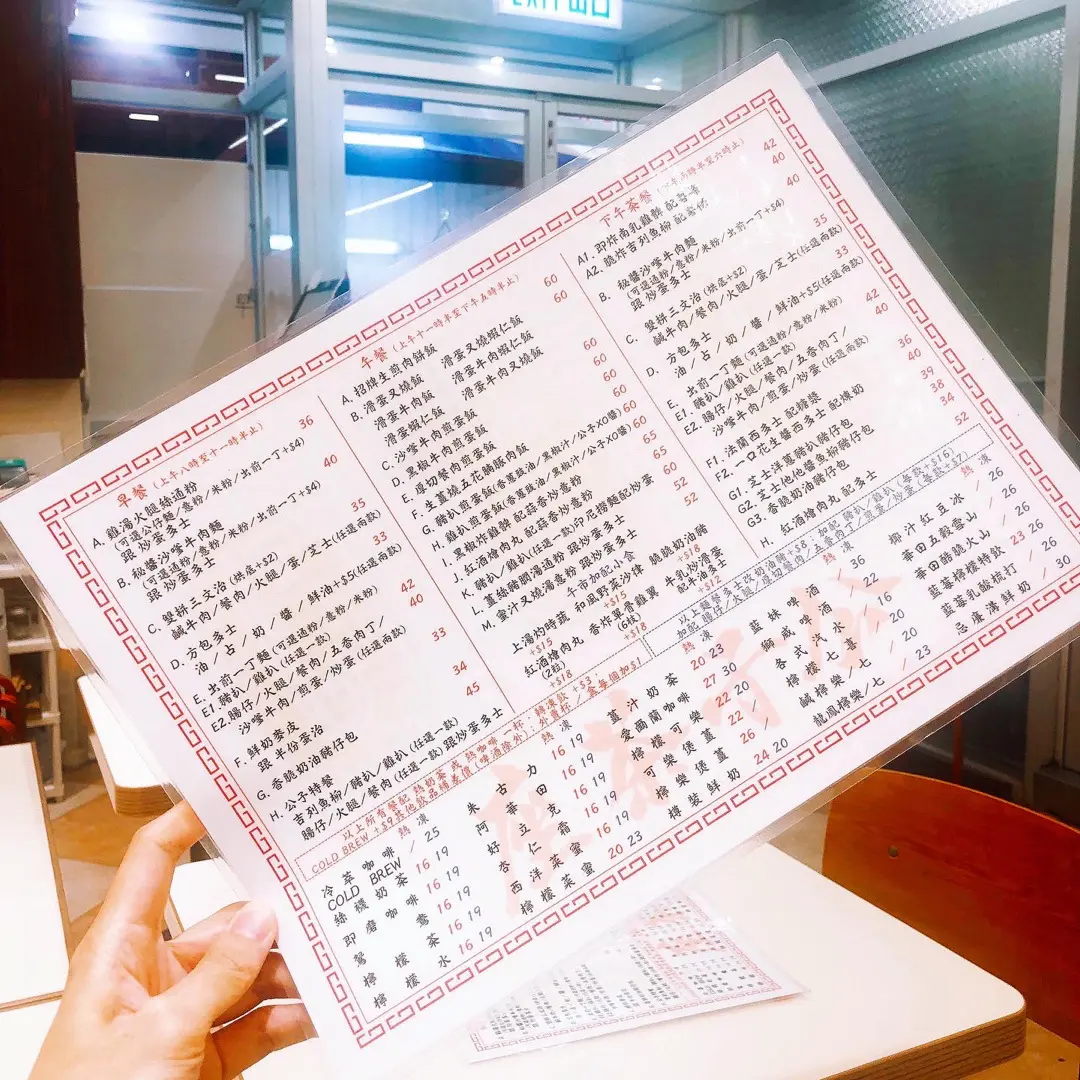 EXIT 出口
早餐 (上午八時至十一時半止)
A. 雞湯火腿絲通粉 36
(可選公仔麵/意粉/米粉/出前一丁+$4)
跟炒蛋多士
B. 秘醬沙嗲牛肉麵 40
(可選通粉/意粉/米粉/出前一丁+$4)
跟炒蛋多士
C. 雙拼三文治 (烘底+$2) 35
鹹牛肉/餐肉/火腿/蛋/芝士(任選兩款)
D. 方包多士 33
油/占/奶/醬/鮮油+$5(任選兩款)
E. 出前一丁麵 (可選通粉/意粉/米粉)
E1. 豬扒/雞扒 (任選一款) 42
E2. 腸仔/火腿/餐肉/五香肉丁/ 40
沙嗲牛肉/煎蛋/炒蛋 (任選兩款)
F. 鮮奶麥皮 33
跟半份蛋治
G. 香脆奶油豬仔包 34
H. 公子特餐 45
吉列魚柳/豬扒/雞扒 (任選一款)
腸仔/火腿/餐肉 (任選一款) 跟炒蛋多士
午餐 (上午十一時半至下午五時半止)
A. 招牌生煎肉餅飯 60
B. 滑蛋叉燒飯 滑蛋叉燒蝦仁飯 60
滑蛋牛肉飯 滑蛋牛肉蝦仁飯
滑蛋蝦仁飯 滑蛋牛肉叉燒飯
C. 沙嗲牛肉煎蛋飯 60
黑椒牛肉煎蛋飯
D. 厚切餐肉煎蛋飯 60
E. 生薑燒五花腩豚肉飯 60
F. 雞扒煎蛋飯(香蔥豉油/黑椒汁/公子XO醬) 60
G. 豬扒煎蛋飯(香蔥豉油/黑椒汁/公子XO醬) 60
H. 黑椒炸雞髀 配蒜香炒意粉 65
I. 紅酒燴肉丸 配蒜香炒意粉 65
J. 豬扒/雞扒(任選一款)印尼撈麵配炒蛋 60
K. 薑絲豬膶湯通粉 跟炒蛋多士 52
L. 蜜汁叉燒湯意粉 跟炒蛋多士 52
M.
午市加配小食
上湯灼時蔬 +$15
和風野菜沙律 +$15
脆脆奶油豬 +$18
紅酒燴肉丸 (2粒) +$18
香炸單骨雞翼 (6條) +$18
牛乳炒滑蛋 配牛油多士 +$12
下午茶餐 (下午二時半至六時止)
A1. 即炸南乳雞髀 配薯條 42
A2. 脆炸吉列魚柳 配薯條 40
B. 秘醬沙嗲牛肉麵 40
(可選通粉/意粉/米粉/出前一丁+$4)
跟炒蛋多士
C. 雙拼三文治 (烘底+$2) 35
鹹牛肉/餐肉/火腿/蛋/芝士(任選兩款)
D. 方包多士 33
油/占/奶/醬/鮮油+$5(任選兩款)
E. 出前一丁麵 (可選通粉/意粉/米粉)
E1. 豬扒/雞扒 (任選一款) 42
E2. 腸仔/火腿/餐肉/五香肉丁/ 40
沙嗲牛肉/煎蛋/炒蛋 (任選兩款)
F1. 法蘭西多士 配糖漿 36
F2. 一口花生醬西多士 配煉奶 40
G1. 芝士洋蔥豬扒豬仔包 39
G2. 芝士他他醬魚柳豬仔包 38
G3. 香脆奶油豬仔包 34
H. 紅酒燴肉丸 配多士 52
以上麵餐多士改奶油豬+$8;加配 豬扒/雞扒(每款+$16)
加配 腸仔/火腿/厚切餐肉/五香肉丁/煎蛋/炒蛋 (每款+$7)
以上所有餐配 熱奶茶 或 熱咖啡一杯;轉凍飲 +$3
COLD BREW +$9 其他飲品補差價(啤酒除外);外賣杯/盒每個加$1
熱 凍
冷萃咖啡 COLD BREW / 25
絲襪奶茶 16 19
即磨咖啡 16 19
鴛鴦 16 19
檸檬茶 16 19
檸檬水 16 19
熱 凍
朱古力 16 19
阿華田 16 19
好立克 16 19
杏仁霜 16 19
西洋菜蜜 16 19
檸檬菜蜜 20 23
熱 凍
薑汁奶茶 20 23
愛爾蘭咖啡 27 30
檸檬可樂 22 20
可樂煲薑 22 /
檸樂煲薑 26 /
樽裝鮮奶 24 20
熱 凍
藍妹啤酒 / 36
獅威啤酒 / 22
各式汽水 / 16
檸檬七喜 / 20
鹹檸樂/七 / 20
龍鳳檸樂/七 / 23
熱 凍
椰汁紅豆冰 / 26
華田五穀雪山 / 26
華田酷脆火山 / 26
藍莓檸檬特飲 23 26
藍莓乳酸梳打 / 26
忌廉溝鮮奶 / 30